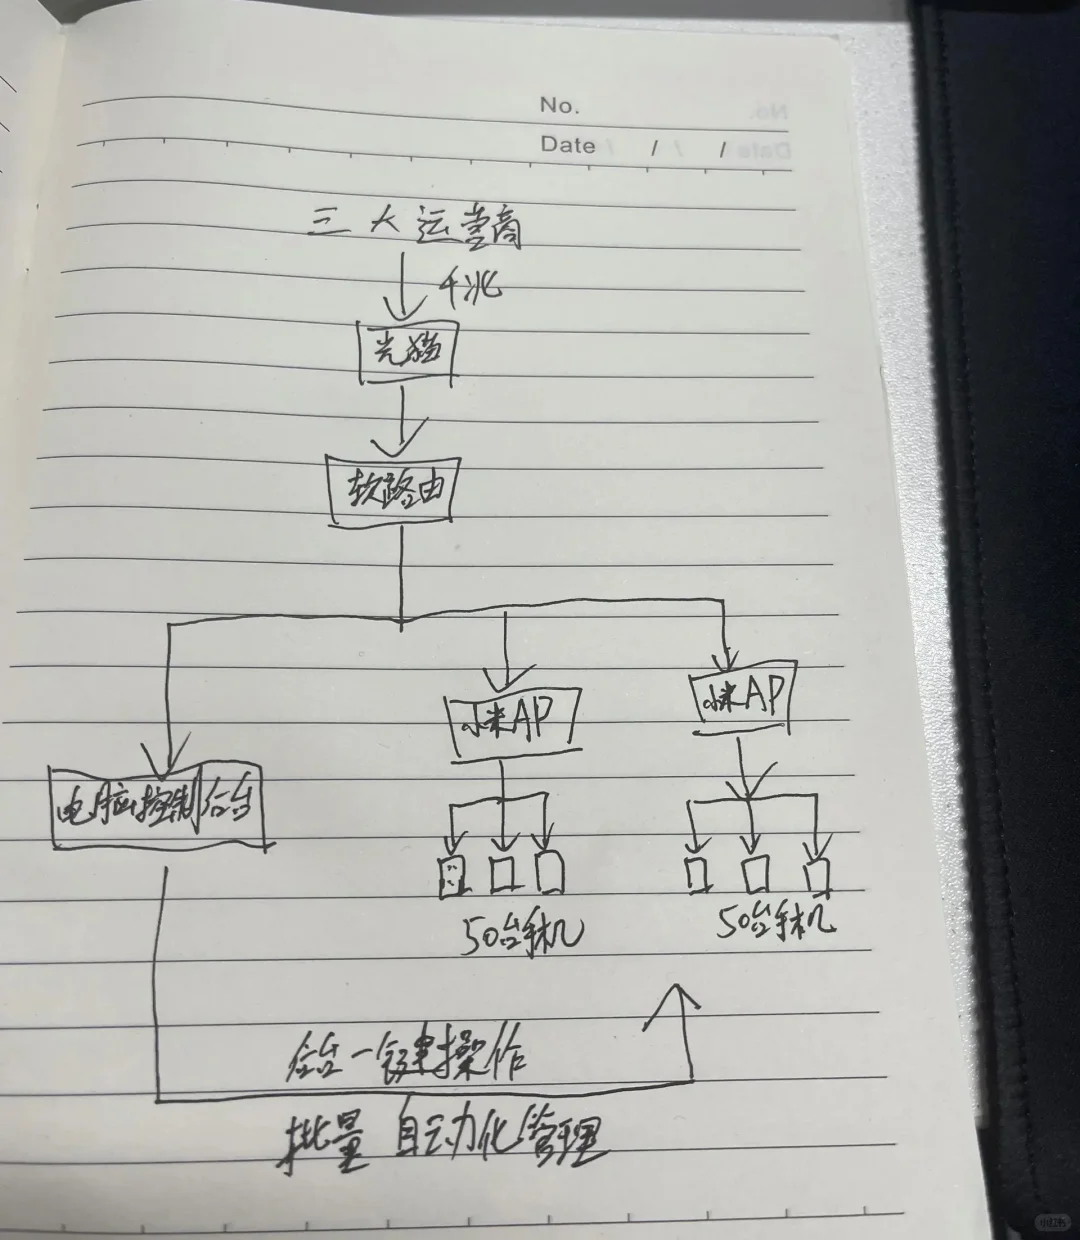 No.
Date / /
三大运营商
千兆
光猫
软路由
小米AP
小米AP
电脑控制后台
50台手机
50台手机
后台一键操作
批量自动化管理
小红书